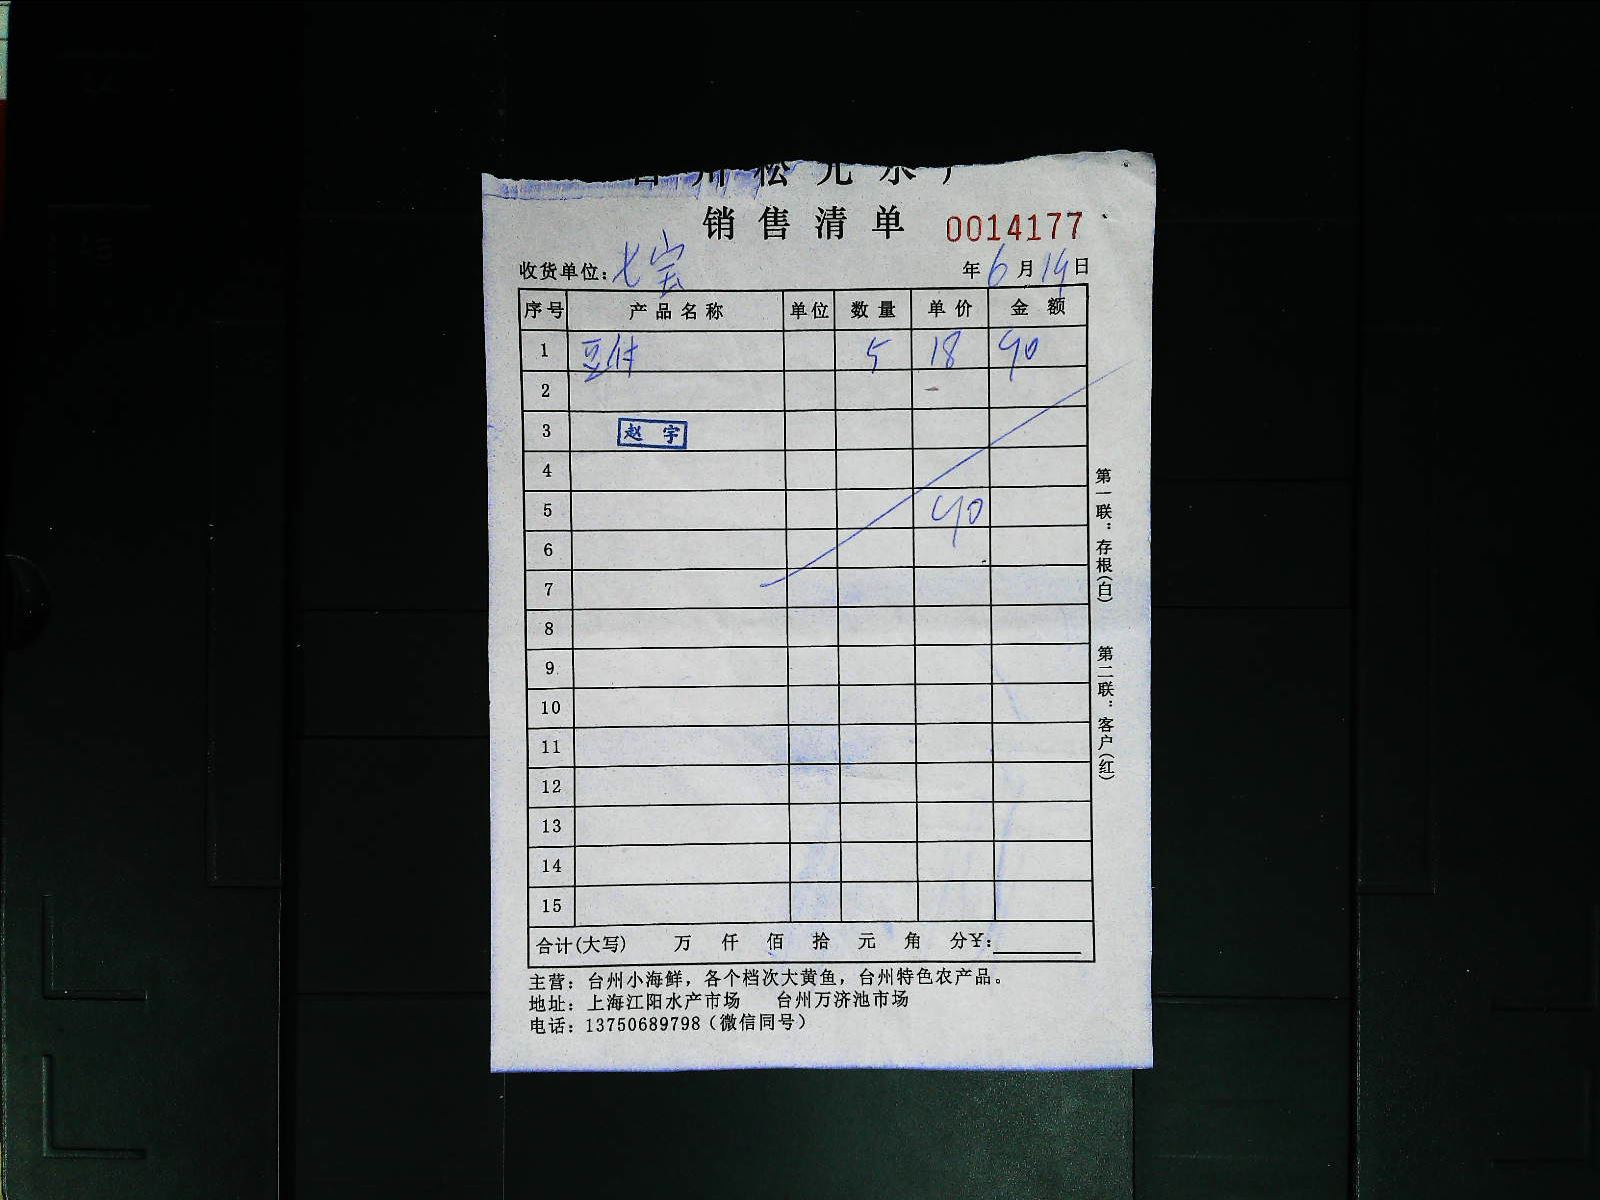 台州松元水产
销售清单 0014177
收货单位:七宝 年6月19日
序号 产品名称 单位 数量 单价 金额
1 豆付 5 18 90
2
3 赵宇
4
5 90
6
7
8
9
10
11
12
13
14
15
合计(大写) 万 仟 佰 拾 元 角 分¥:
主营:台州小海鲜,各个档次大黄鱼,台州特色农产品。
地址:上海江阳水产市场 台州万济池市场
电话:13750689798(微信同号)
第一联:存根(白)
第二联:客户(红)